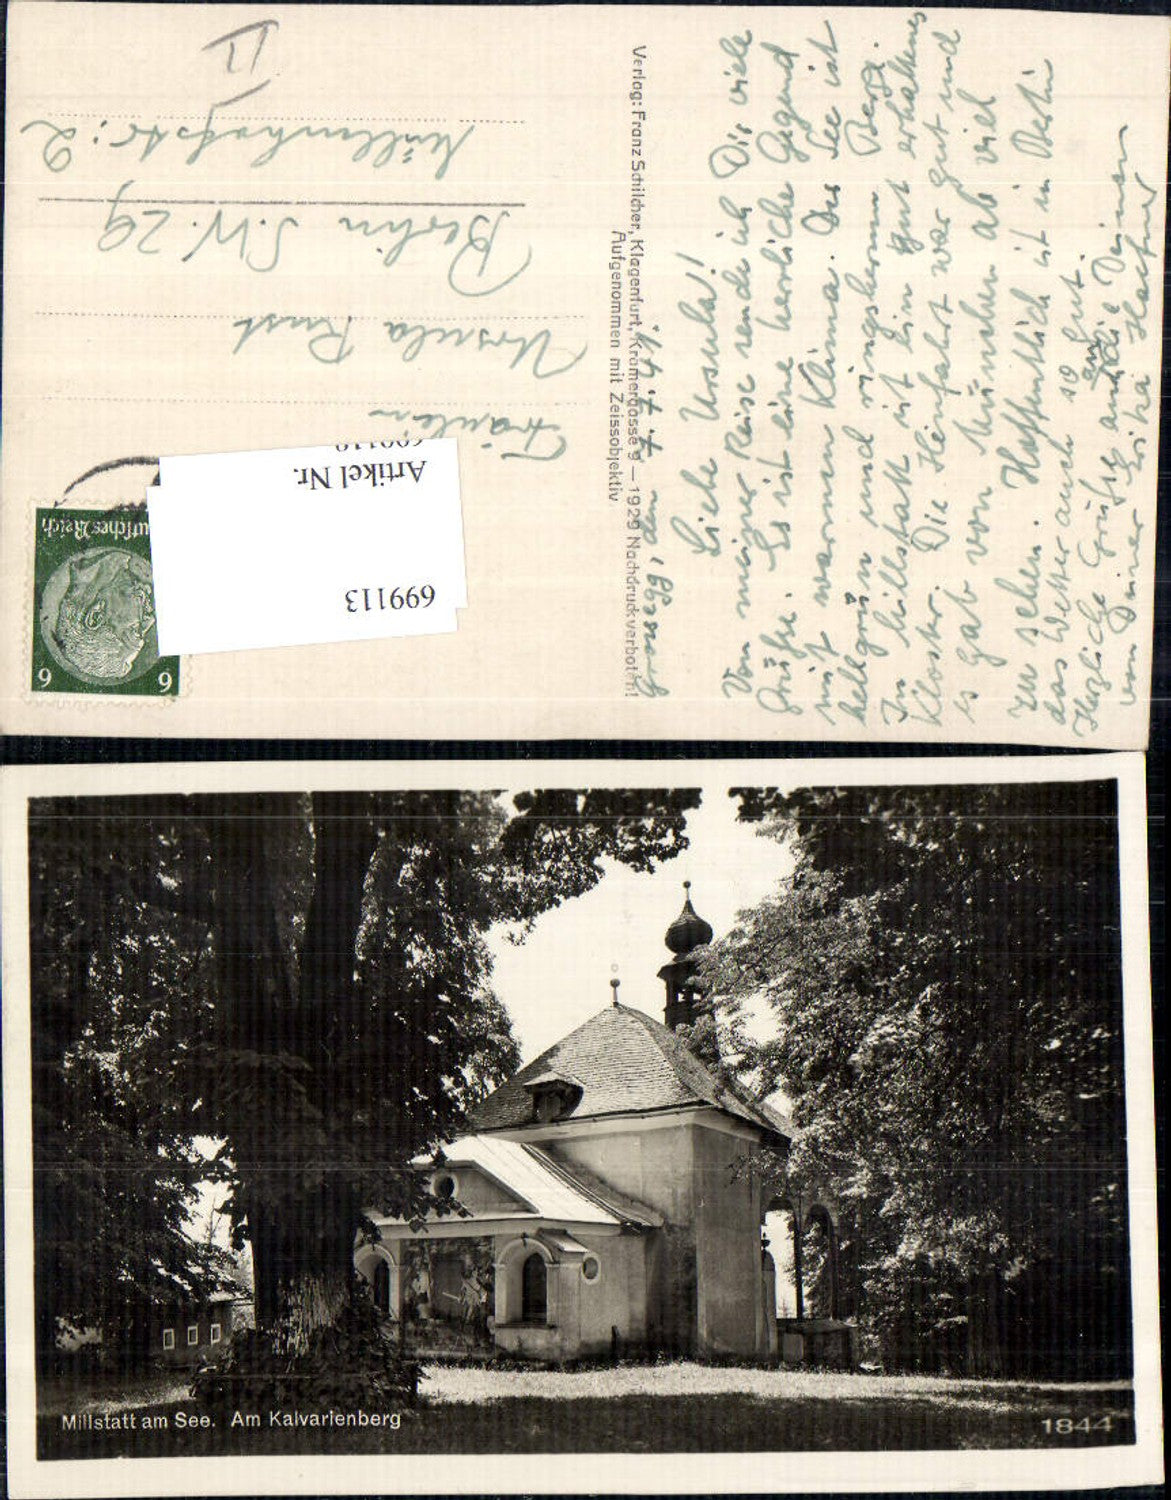 Großegg, den 7.7.41.
Liebe Ursula!
Von meiner Reise sende ich Dir viele
Grüße. Es ist eine herrliche Gegend
mit warmem Klima. Der See ist
hellgrün und ringsherum Berge.
In Millstatt ist ein gut erhaltenes
Kloster. Die Hinfahrt war gut und
es gab von München ab viel
zu sehen. Hoffentlich ist in Berlin
das Wetter auch so gut.
Herzliche Grüße auch an die Deinen
von Deiner Erika
Verlag: Franz Schilcher, Klagenfurt, Kramergasse 9 — 1929 Nachdruck verboten!
Aufgenommen mit Zeissobjektiv.
Fräulein
Ursula Rust
Berlin S.W. 29
Müllenhoffstr: 2
II
Deutsches Reich
6 6
699113
Artikel Nr.
699113
Millstatt am See. Am Kalvarienberg
1844